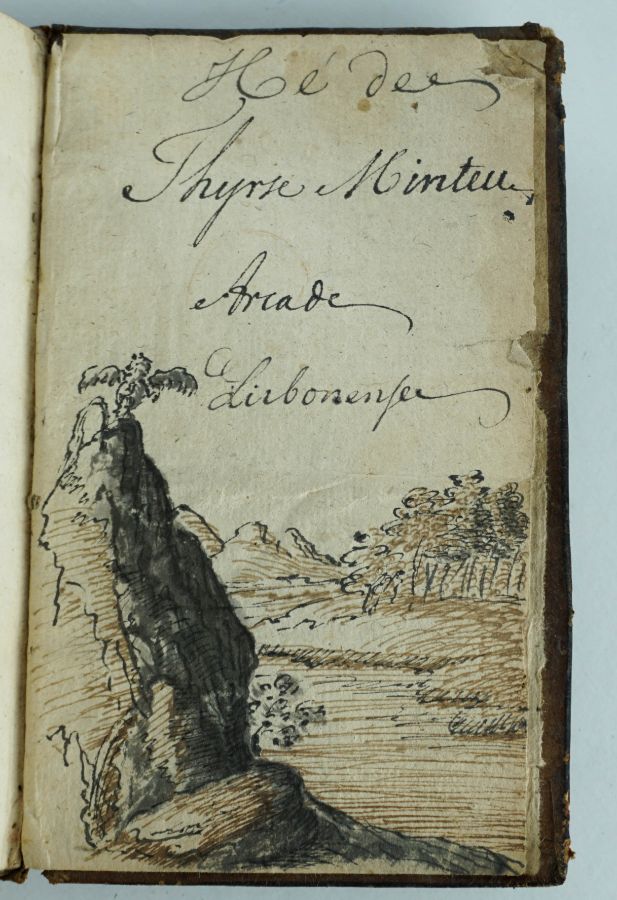 Hé de
Thyrse Minteu
Arcade
Lisbonense